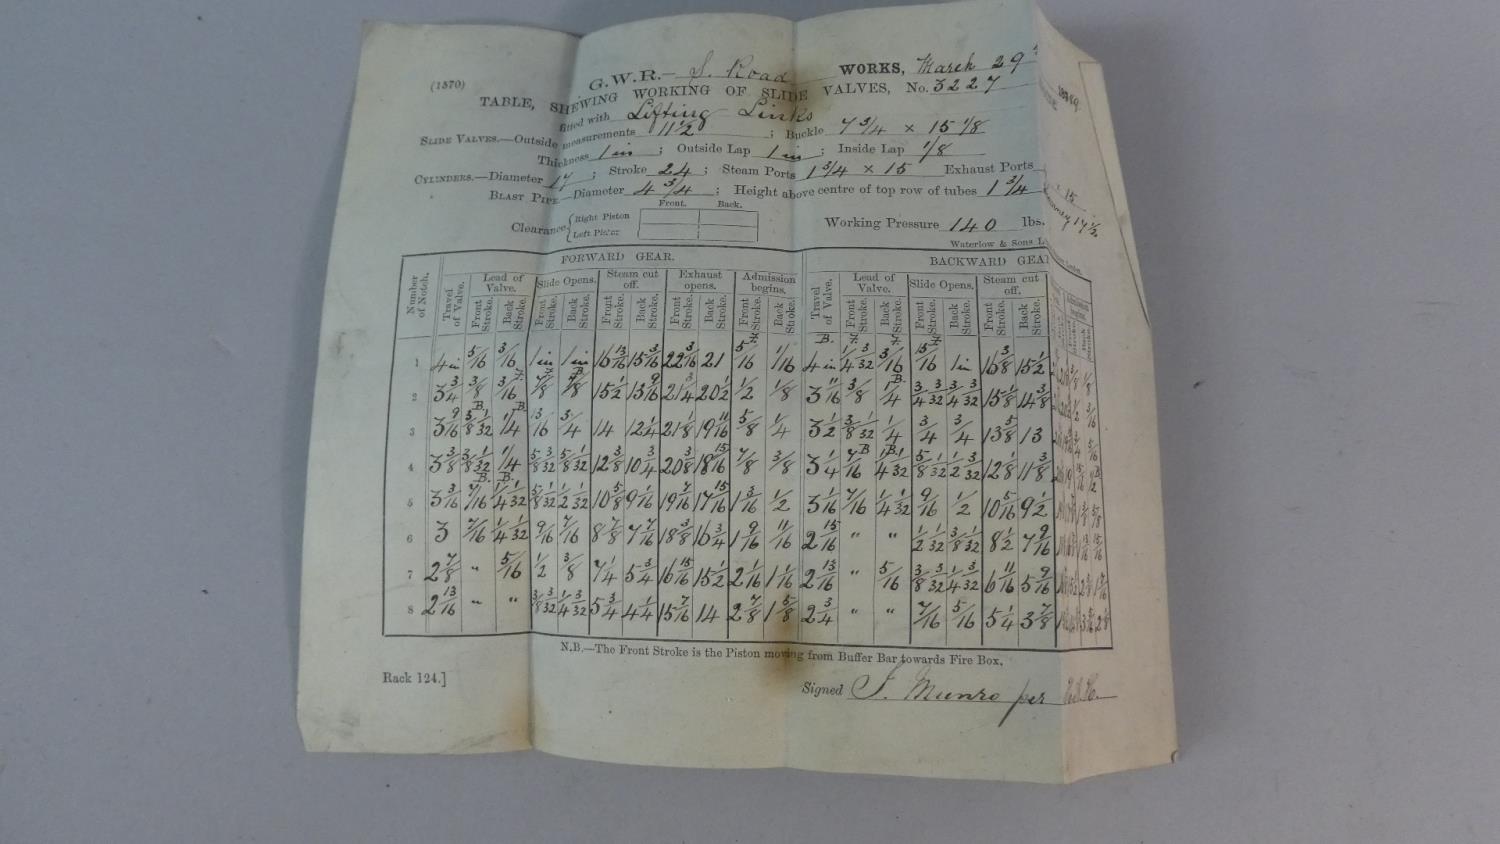 (1570)
G.W.R.— S. Road WORKS, March 29th
TABLE, SHEWING WORKING OF SLIDE VALVES, No. 3227
fitted with Lifting Links
SLIDE VALVES.—Outside measurements 11½ ; Buckle 7 3/4 × 15 1/8
Thickness 1 in ; Outside Lap 1 in ; Inside Lap 1/8
CYLINDERS.—Diameter 17 ; Stroke 24 ; Steam Ports 1 3/4 × 15 Exhaust Ports
BLAST PIPE—Diameter 4 3/4 ; Height above centre of top row of tubes 1 3/4
Front. Back.
Clearance Right Piston
Left Piston
Working Pressure 140 lbs.
Waterlow & Sons
FORWARD GEAR. BACKWARD GEA
Number of Notch. Travel of Valve. Lead of Valve. Slide Opens. Steam cut off. Exhaust opens. Admission begins. Travel of Valve. Lead of Valve. Slide Opens. Steam cut off.
Front Stroke. Back Stroke. Front Stroke. Back Stroke. Front Stroke. Back Stroke. Front Stroke. Back Stroke. Front Stroke. Back Stroke. Front Stroke. Back Stroke. Front Stroke. Back Stroke. Front Stroke. Back Stroke.
1 4 in 5/16 3/16 1 in 1 in 16 13/16 15 3/16 22 3/16 21 5/16 1/16 4 in 1/4 3/32 3/16 15/16 1 in 16 3/8 15 1/2
2 3 3/4 3/8 3/16 7/8 7/8 15 1/2 13 9/16 21 3/4 20 1/2 1/2 1/8 3 11/16 3/8 1/4 3/4 3/32 3/4 3/32 15 1/8 14 3/8
3 3 9/16 3/8 1/32 1/4 13/16 3/4 14 12 1/4 21 1/8 19 11/16 5/8 1/4 3 1/2 3/8 1/32 1/4 3/4 3/4 13 5/8 13
4 3 3/8 3/8 1/32 1/4 5/8 3/32 5/8 1/32 12 3/8 10 3/4 20 3/8 18 15/16 7/8 3/8 3 1/4 7/16 1/4 1/32 5/8 1/32 1/2 3/32 12 1/8 11 3/8
5 3 3/16 7/16 1/4 1/32 5/8 1/32 1/2 1/32 10 5/8 9 1/16 19 7/16 17 15/16 1 3/16 1/2 3 1/16 7/16 1/4 1/32 9/16 1/2 10 5/16 9 1/2
6 3 7/16 1/4 1/32 9/16 7/16 8 7/8 7 7/16 18 3/8 16 3/4 1 9/16 11/16 2 15/16 " " 1/2 1/32 3/8 1/32 8 1/2 7 9/16
7 2 7/8 " 5/16 1/2 3/8 7 1/4 5 3/4 16 15/16 15 1/2 2 1/16 1 1/16 2 13/16 " 5/16 3/8 3/32 1/4 3/32 6 11/16 5 9/16
8 2 13/16 " " 3/8 3/32 1/4 3/32 5 3/4 4 1/4 15 7/16 14 2 7/8 1 5/8 2 3/4 " " 7/16 5/16 5 1/4 3 7/8
N.B.—The Front Stroke is the Piston moving from Buffer Bar towards Fire Box.
Rack 124.]
Signed J. Munro per